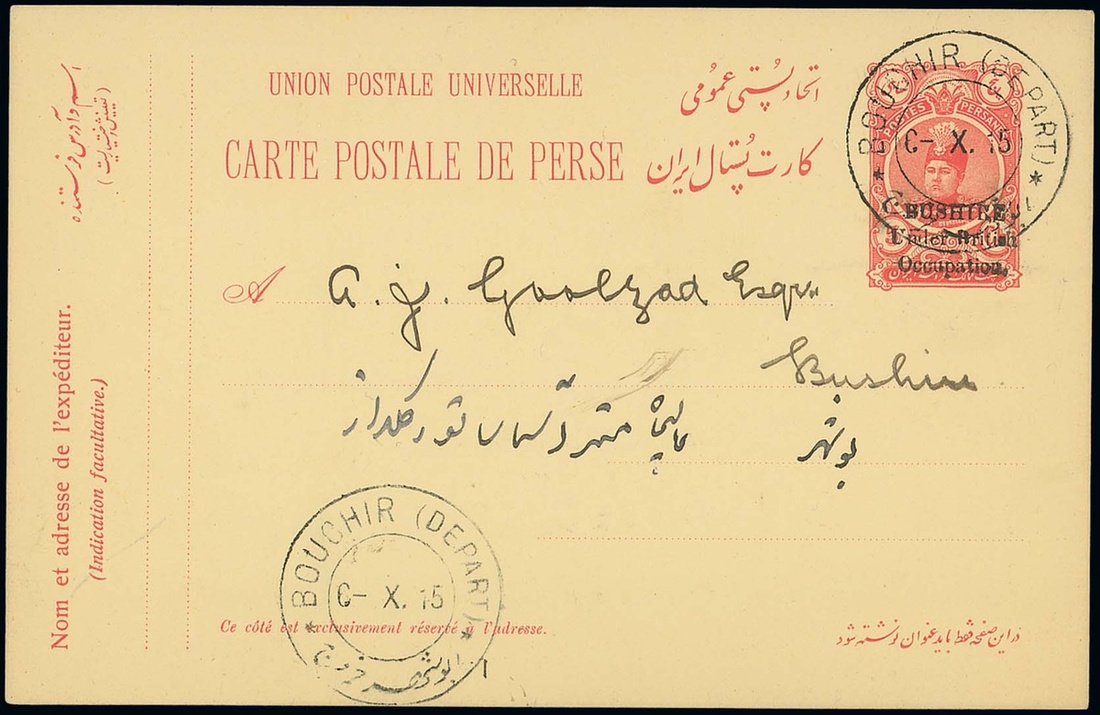 UNION POSTALE UNIVERSELLE
اتحاد پستی عمومی
CARTE POSTALE DE PERSE
کارت پستال ایران
POSTES PERSANES
BOUCHIR (DEPART)
6- X. 15
BUSHIRE
Under British
Occupation.
A
A. J. Goolzad Esqr.
Bushire
بوشهر
Nom et adresse de l'expéditeur.
(Indication facultative.)
اسم و آدرس فرستنده
BOUCHIR (DEPART)
6- X. 15
ابوشهر خروج
Ce côté est exclusivement réservé à l'adresse.
در این صفحه فقط باید عنوان نوشته شود